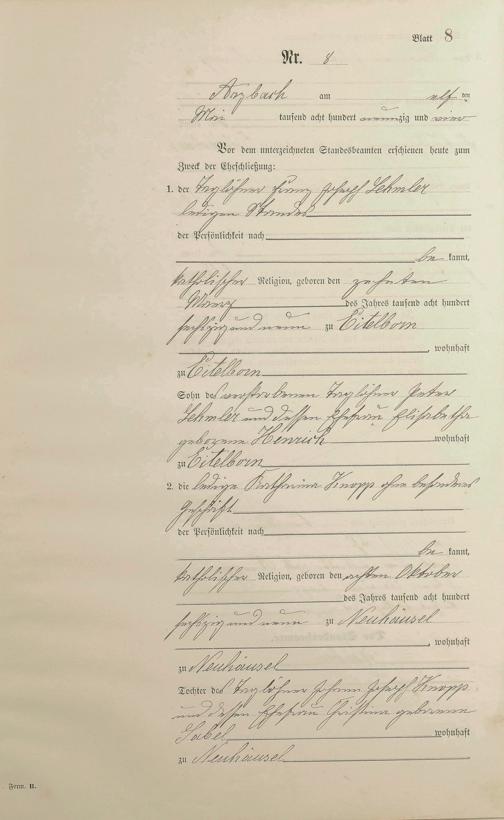 Blatt 8
Nr. 8
Arzbach am elf ten
Mai tausend acht hundert neunzig und vier
Vor dem unterzeichneten Standesbeamten erschienen heute zum
Zweck der Eheschließung:
1. der Taglöhner Franz Joseph Lehmler
ledigen Standes
der Persönlichkeit nach
be kannt,
katholischer Religion, geboren den zehnten
Maerz des Jahres tausend acht hundert
sechzig und neun zu Eitelborn
, wohnhaft
zu Eitelborn
Sohn des verstorbenen Taglöhner Peter
Lehmler und dessen Ehefrau Elisabetha
geborene Henrich wohnhaft
zu Eitelborn
2. die ledige Katharina Knopp ohne besonderes
Geschäft
der Persönlichkeit nach
be kannt,
katholischer Religion, geboren den achten Oktober
des Jahres tausend acht hundert
sechzig und neun zu Neuhäusel
, wohnhaft
zu Neuhäusel
Tochter des Taglöhner Johann Joseph Knopp
und dessen Ehefrau Christina geborene
Sabel wohnhaft
zu Neuhäusel
Form. B.